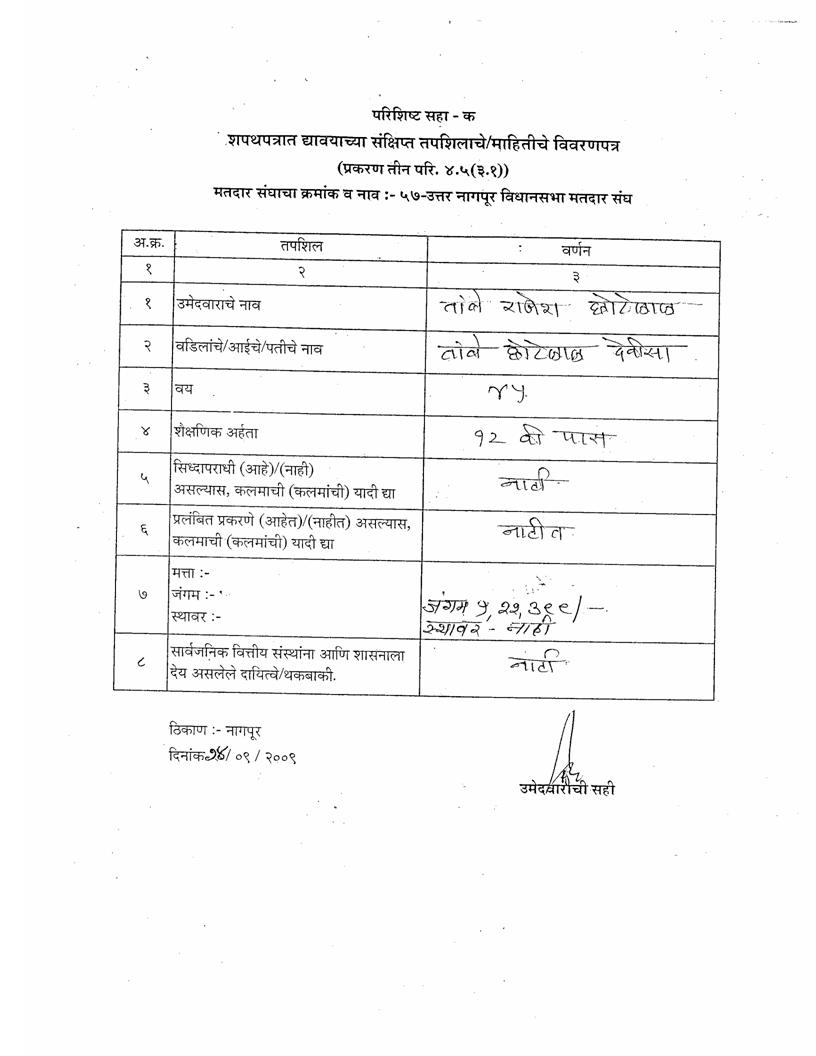 परिशिष्ट सहा - क
शपथपत्रात द्यावयाच्या संक्षिप्त तपशिलाचे/माहितीचे विवरणपत्र
(प्रकरण तीन परि. ४.५(३.१))
मतदार संघाचा क्रमांक व नाव :- ५७-उत्तर नागपूर विधानसभा मतदार संघ
अ.क्र. तपशिल : वर्णन
१ २ ३
१ उमेदवाराचे नाव तांबे राजेश छोटेलाल
२ वडिलांचे/आईचे/पतीचे नाव तांबे छोटेलाल देवीसा
३ वय ४५
४ शैक्षणिक अर्हता १२ वी पास
५ सिध्दापराधी (आहे)/(नाही) नाही
असल्यास, कलमाची (कलमांची) यादी द्या
६ प्रलंबित प्रकरणे (आहेत)/(नाहीत) असल्यास, नाहीत
कलमाची (कलमांची) यादी द्या
७ मत्ता :-
जंगम :- जंगम ५,२२,३९९/-
स्थावर :- स्थावर - नाही
८ सार्वजनिक वित्तीय संस्थांना आणि शासनाला नाही
देय असलेले दायित्वे/थकबाकी.
ठिकाण :- नागपूर
दिनांक / ०९ / २००९
उमेदवाराची सही